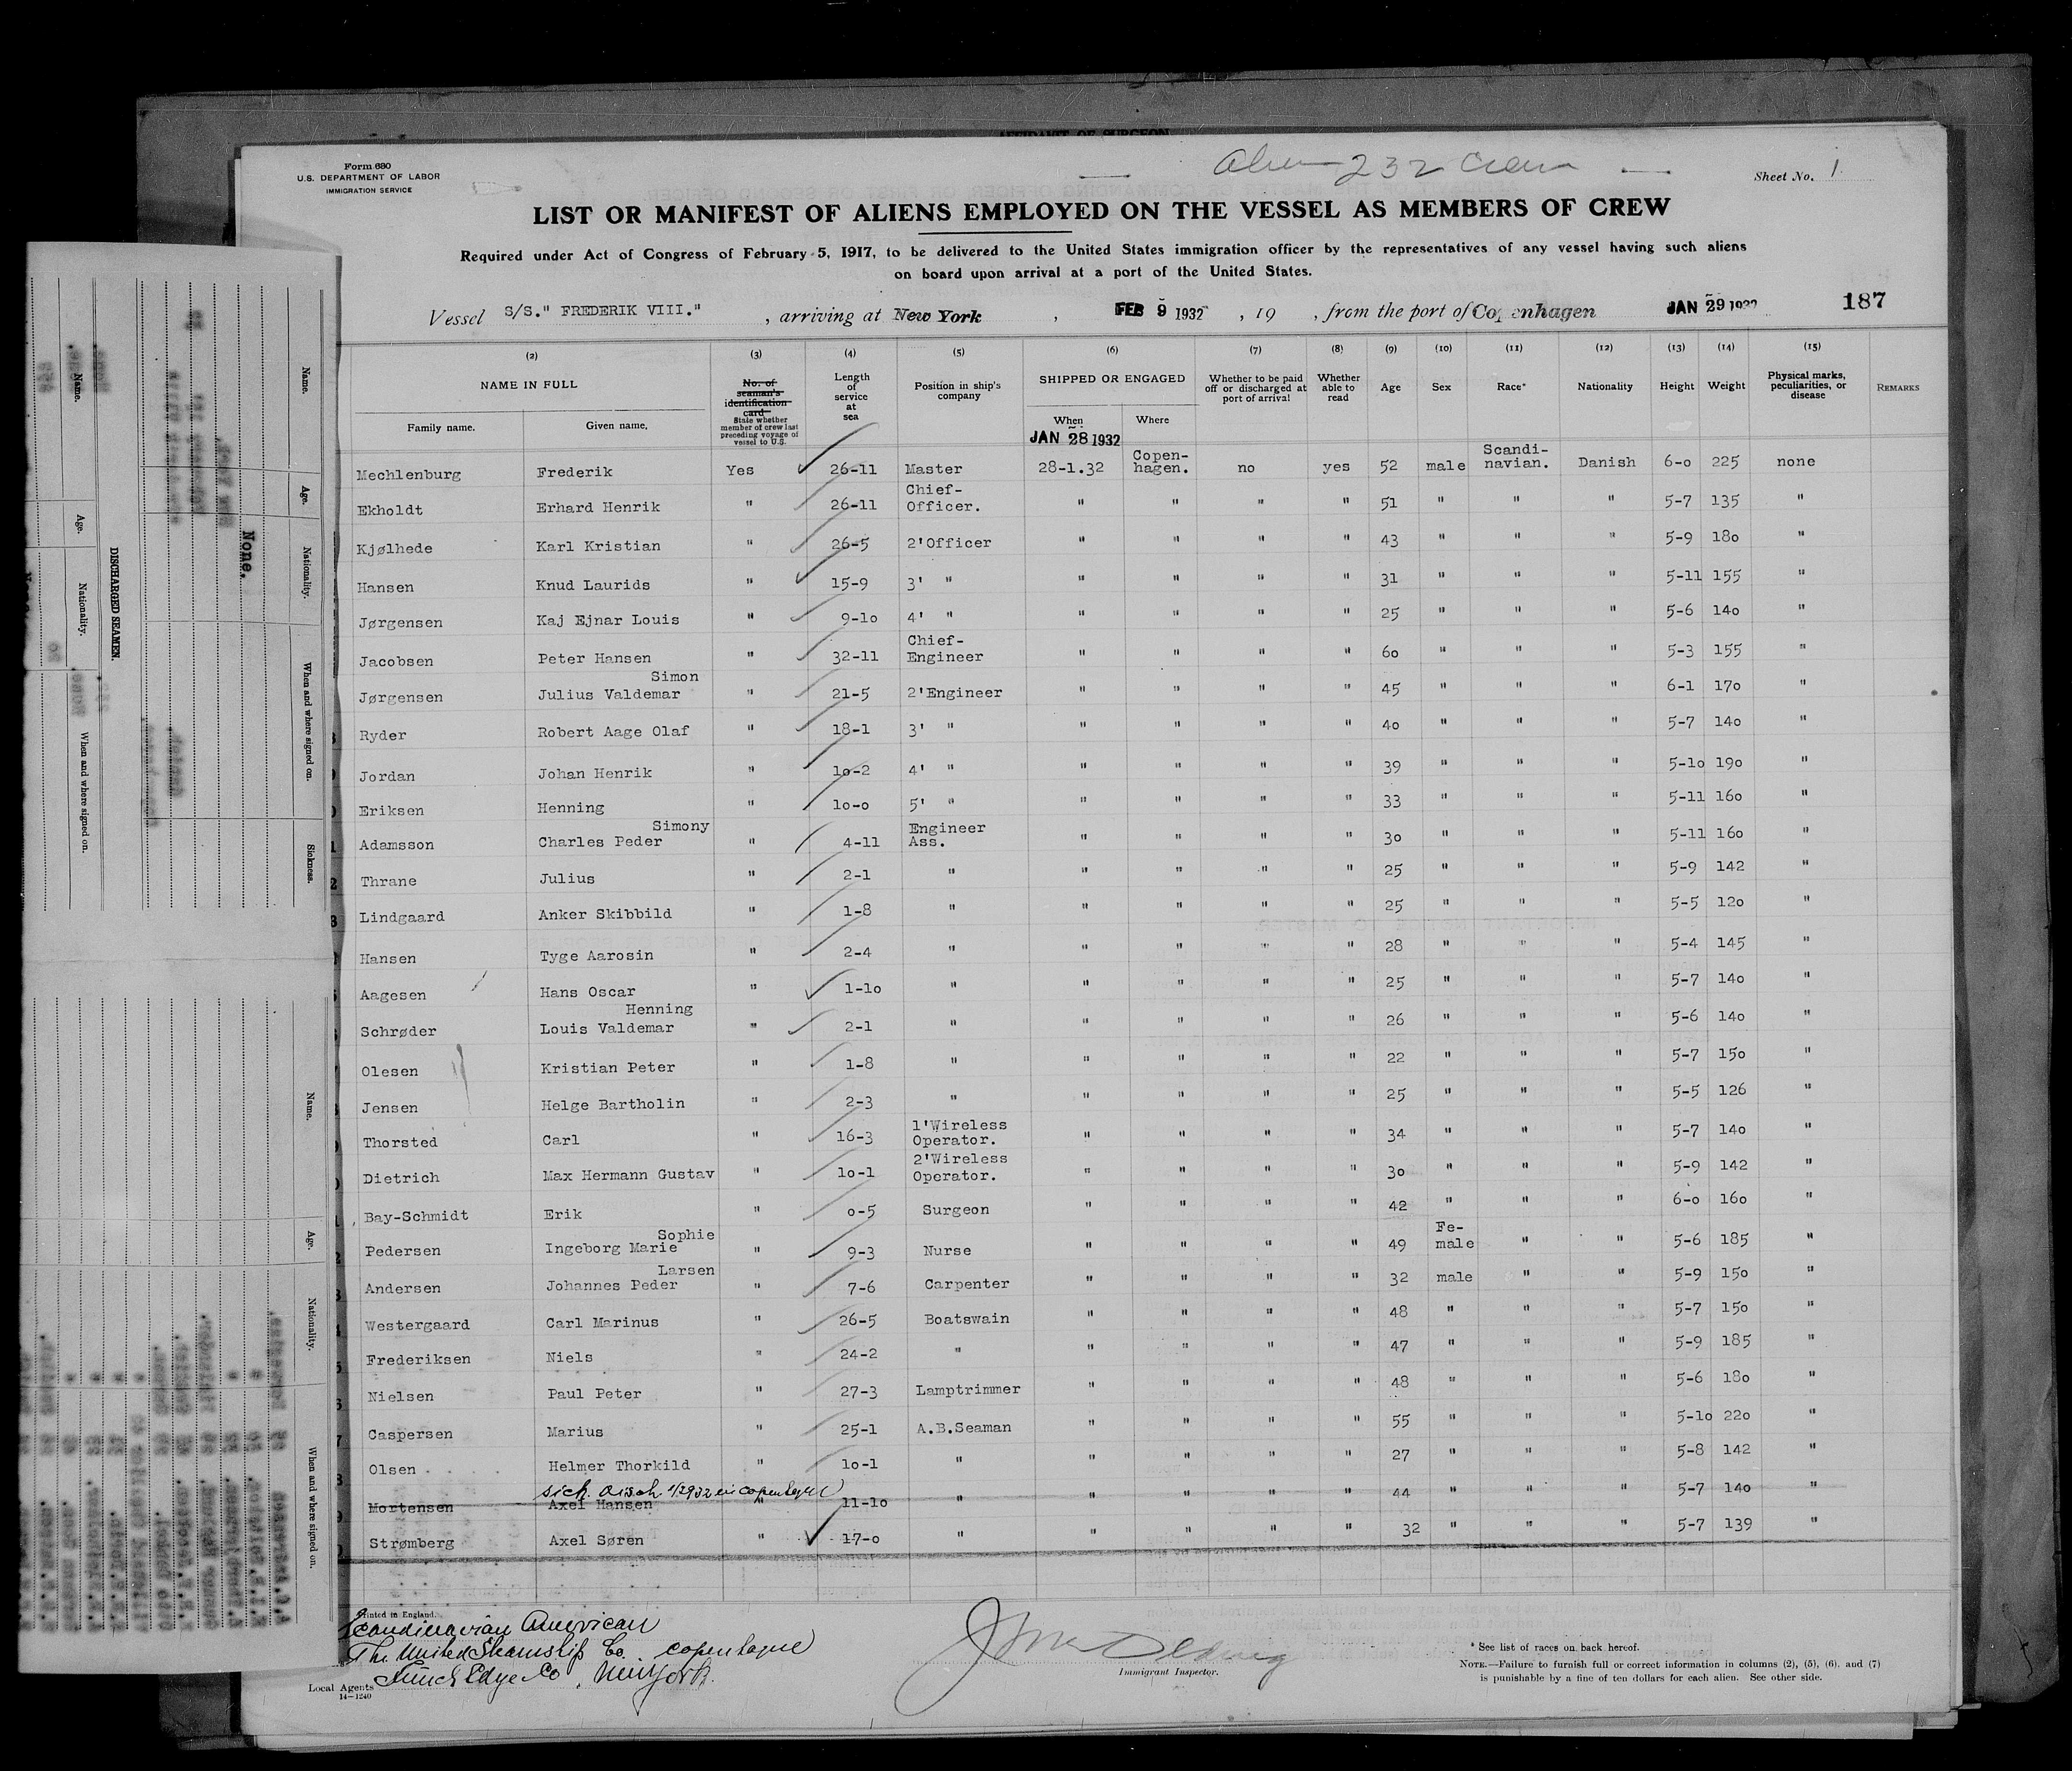 Form 680
U.S. DEPARTMENT OF LABOR
IMMIGRATION SERVICE
Alien 232 Crew
Sheet No. 1
LIST OR MANIFEST OF ALIENS EMPLOYED ON THE VESSEL AS MEMBERS OF CREW
Required under Act of Congress of February 5, 1917, to be delivered to the United States immigration officer by the representatives of any vessel having such aliens
on board upon arrival at a port of the United States.
Vessel S/S." FREDERIK VIII.", arriving at New York, FEB 9 1932, 19 , from the port of Copenhagen JAN 29 1932 187
(2) (3) (4) (5) (6) (7) (8) (9) (10) (11) (12) (13) (14) (15)
NAME IN FULL
Family name. Given name.
No. of seaman's identification card
State whether member of crew last preceding voyage of vessel to U.S.
Length of service at sea
Position in ship's company
SHIPPED OR ENGAGED
When Where
JAN 28 1932
Whether to be paid off or discharged at port of arrival
Whether able to read
Age Sex Race* Nationality Height Weight
Physical marks, peculiarities, or disease
REMARKS
Mechlenburg Frederik Yes 26-11 Master 28-1.32 Copen-hagen. no yes 52 male Scandi-navian. Danish 6-0 225 none
Ekholdt Erhard Henrik " 26-11 Chief-Officer. " " " " 51 " " " 5-7 135 "
Kjølhede Karl Kristian " 26-5 2'Officer " " " " 43 " " " 5-9 180 "
Hansen Knud Laurids " 15-9 3' " " " " " 31 " " " 5-11 155 "
Jørgensen Kaj Ejnar Louis " 9-10 4' " " " " " 25 " " " 5-6 140 "
Jacobsen Peter Hansen " 32-11 Chief-Engineer " " " " 60 " " " 5-3 155 "
Jørgensen Julius Valdemar Simon " 21-5 2'Engineer " " " " 45 " " " 6-1 170 "
Ryder Robert Aage Olaf " 18-1 3' " " " " " 40 " " " 5-7 140 "
Jordan Johan Henrik " 10-2 4' " " " " " 39 " " " 5-10 190 "
Eriksen Henning " 10-0 5' " " " " " 33 " " " 5-11 160 "
Adamsson Charles Peder Simony " 4-11 Engineer Ass. " " " " 30 " " " 5-11 160 "
Thrane Julius " 2-1 " " " " " 25 " " " 5-9 142 "
Lindgaard Anker Skibbild " 1-8 " " " " " 25 " " " 5-5 120 "
Hansen Tyge Aarosin " 2-4 " " " " " 28 " " " 5-4 145 "
Aagesen Hans Oscar " 1-10 " " " " " 25 " " " 5-7 140 "
Schrøder Louis Valdemar Henning " 2-1 " " " " " 26 " " " 5-6 140 "
Olesen Kristian Peter " 1-8 " " " " " 22 " " " 5-7 150 "
Jensen Helge Bartholin " 2-3 " " " " " 25 " " " 5-5 126 "
Thorsted Carl " 16-3 1'Wireless Operator. " " " " 34 " " " 5-7 140 "
Dietrich Max Hermann Gustav " 10-1 2'Wireless Operator. " " " " 30 " " " 5-9 142 "
Bay-Schmidt Erik " 0-5 Surgeon " " " " 42 " " " 6-0 160 "
Pedersen Ingeborg Marie Sophie " 9-3 Nurse " " " " 49 Fe-male " " 5-6 185 "
Andersen Johannes Peder Larsen " 7-6 Carpenter " " " " 32 male " " 5-9 150 "
Westergaard Carl Marinus " 26-5 Boatswain " " " " 48 " " " 5-7 150 "
Frederiksen Niels " 24-2 " " " " " 47 " " " 5-9 185 "
Nielsen Paul Peter " 27-3 Lamptrimmer " " " " 48 " " " 5-6 180 "
Caspersen Marius " 25-1 A.B.Seaman " " " " 55 " " " 5-10 220 "
Olsen Helmer Thorkild " 10-1 " " " " " 27 " " " 5-8 142 "
sick. disch. in Copenhagen
Mortensen Axel Hansen " 11-10 " " " " " 44 " " " 5-7 140 "
Strømberg Axel Søren " 17-0 " " " " " 32 " " " 5-7 139 "
Printed in England.
Scandinavian American
The United Steamship Co. Copenhague
Funch Edye Co, New York.
Local Agents
14-1240
Immigrant Inspector.
* See list of races on back hereof.
NOTE.—Failure to furnish full or correct information in columns (2), (5), (6), and (7)
is punishable by a fine of ten dollars for each alien. See other side.
Name. Age. Nationality. When and where signed on. Sickness.
None.
DISCHARGED SEAMEN.
Name. Age. Nationality. When and where signed on.
Name. Age. Nationality. When and where signed on.